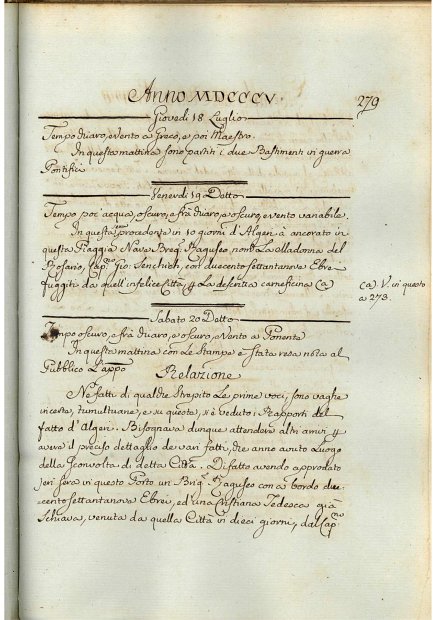 Anno MDCCCV.
279
Giovedì 18 Luglio
Tempo chiaro, e vento a Greco, e poi Maestro.
In questa mattina sono partiti i due Bastimenti in guerra
Pontifici
Venerdì 19 Detto
Tempo poc' acqua, oscuro, e frà chiaro, e oscuro, e vento variabile.
In questa procedenza in 10 giorni d'Algeri à ancorato in
questa Piaggia Nave Brig. Raguseo nom.ta La Madonna del
Rosario, Cap.no Gio: con duecento settantanove Ebrei
fuggiti da quell' infelice Città La descritta carneficina (a)
(a) V. in questo
a 273.
Sabato 20 Detto
Tempo oscuro, e frà chiaro, e oscuro, e Vento a Ponente
In questa mattina con Le Stampe è stata resa nota al
Pubblico L'appo
Relazione
Ne' fatti di qualche Strepito Le prime voci, sono vaghe
incerte, tumultuarie, e su questa, si è veduto i Rapporti del
fatto d'Algeri. Bisognava dunque attendere altri arrivi
avere il preciso dettaglio de varj fatti, che anno avuto Luogo
della Sconvolta di detta Città. Difatto avendo approdato
Jeri sera in questo Porto un Brig.o Raguseo con a bordo due-
cento settantanove Ebrei, ed una Cristiana Tedesca già
Schiava, venuta da quella Città in dieci giorni, dal Cap.no